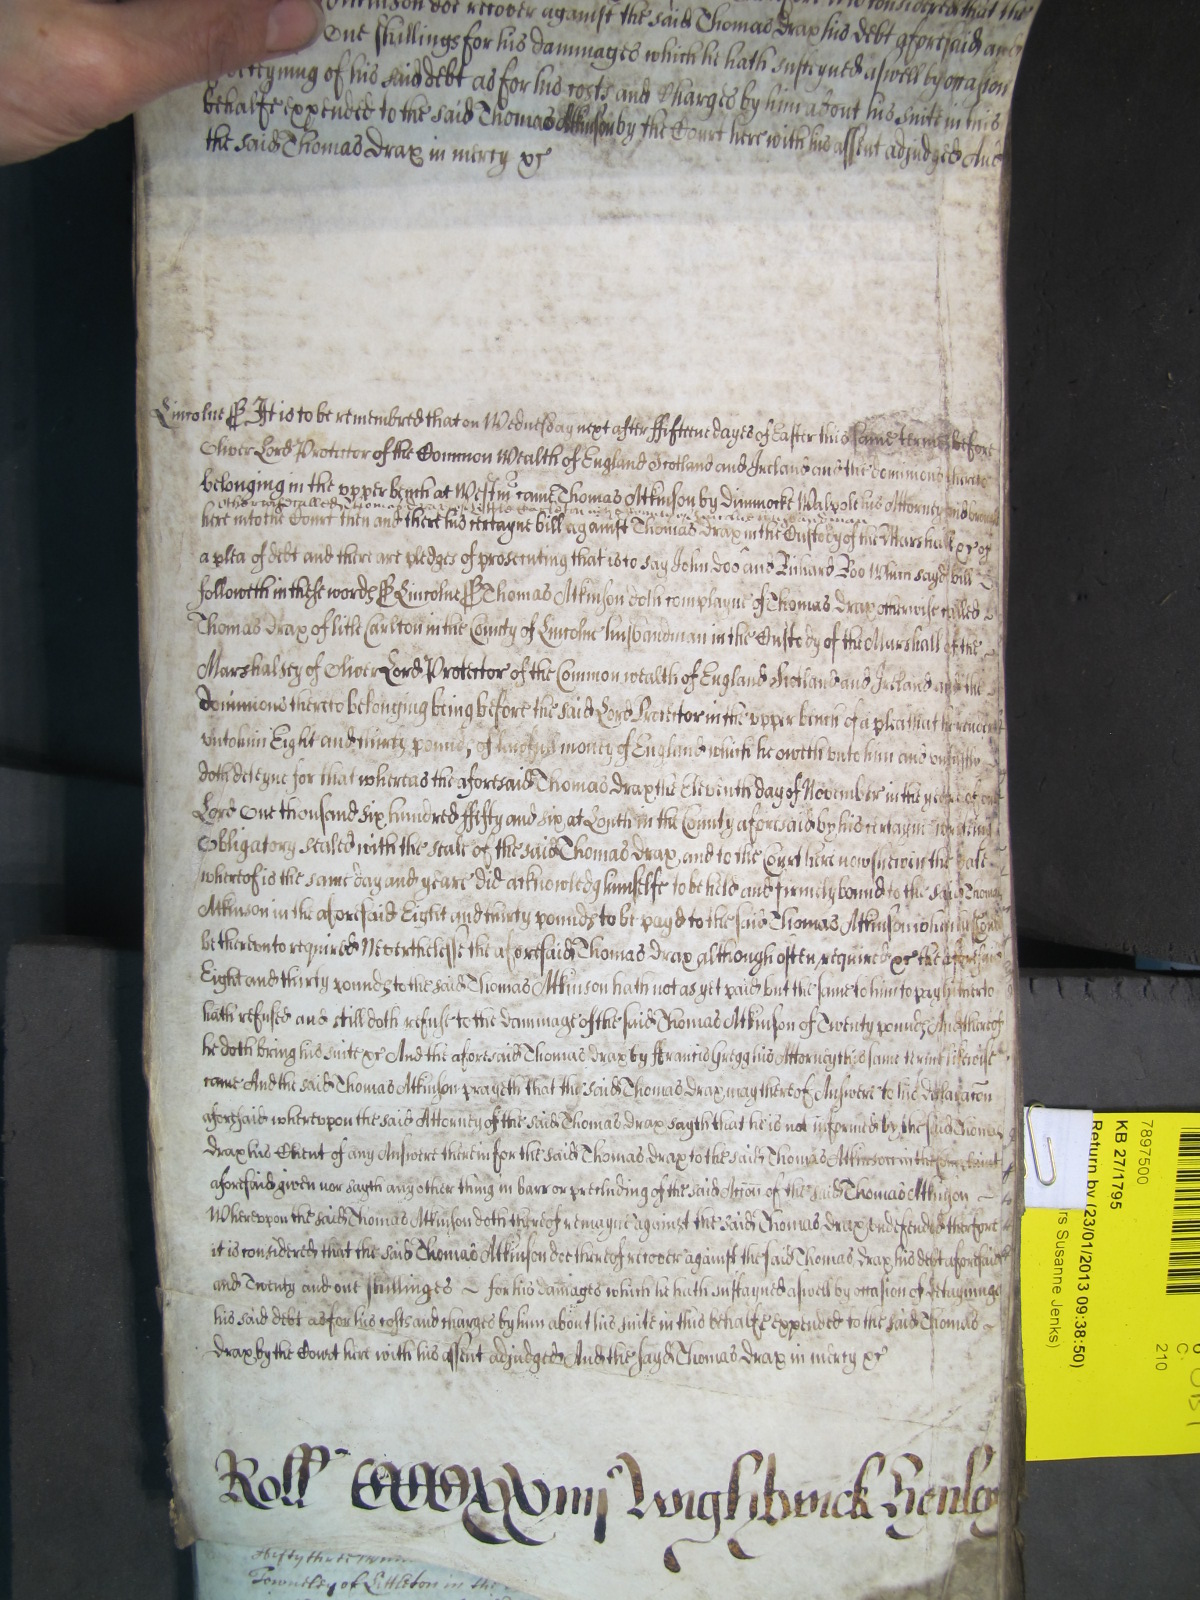 doe recover against the said Thomas Drax his debt aforesaid and
One shillings for his dammages which he hath susteyned aswell by occasion
of his said debt as for his costs and charges by him about his suite in this
behalfe expended to the said Thomas Atkinson by the Court here with his assent adjudged And
the said Thomas Drax in mercy &c
Lincolne ss It is to be remembred that on Wednesday next after ffifteene dayes of Easter this same terme before
Oliver Lord Protector of the Common Wealth of England Scotland and Ireland and the dominions thereto
belonging in the upper bench at Westmr came Thomas Atkinson by Dimmocke Walpole his Attorney and brought
otherwise called Thomas Drax of litle Carlton in the County of Lincolne husbandman
here into the Court then and there his certayne bill against Thomas Drax in the Custody of the Marshall &c of
a plea of debt and there are pledges of prosecuting that is to say John Doo and Richard Roo Which sayd bill
followeth in these words ss Lincolne ss Thomas Atkinson doth complayne of Thomas Drax otherwise called
Thomas Drax of litle Carlton in the County of Lincolne husbandman in the Custody of the Marshall of the
Marshalsey of Oliver Lord Protector of the Common wealth of England Scotland and Ireland and the
dominions thereto belonging being before the said Lord Protector in the upper bench of a plea that he render
unto him Eight and thirty pounds of lawfull money of England which he oweth unto him and unjustly
doth deteyne for that whereas the aforesaid Thomas Drax the Eleventh day of November in the yeare of our
Lord One thousand six hundred ffifty and six at Louth in the County aforesaid by his certayne writing
Obligatory sealed with the seale of the said Thomas Drax and to the Court here now shewen the date
whereof is the same day and yeare did acknowledg himselfe to be held and firmely bound to the said Thomas
Atkinson in the aforesaid Eight and thirty pounds to be payd to the said Thomas Atkinson
be thereunto required Neverthelesse the aforesaid Thomas Drax although often required &c the aforesaid
Eight and thirty pounds to the said Thomas Atkinson hath not as yet paid but the same to him to pay hitherto
hath refused and still doth refuse to the dammage of the said Thomas Atkinson of Twenty pounds And thereof
he doth bring his suite &c And the aforesaid Thomas Drax by ffrancis Gregg his Attorney this same terme likewise
came And the said Thomas Atkinson prayeth that the said Thomas Drax may thereof Answere to his declaracon
aforesaid whereupon the said Attorney of the said Thomas Drax sayth that he is not informed by the said Thomas
Drax his Client of any Answere therein for the said Thomas Drax to the said Thomas Atkinson in the complaint
aforesaid given nor sayth any other thing in barr or precluding of the said Acion of the said Thomas Atkinson
Whereupon the said Thomas Atkinson doth thereof remayne against the said Thomas Drax undefended therfore
it is considered that the said Thomas Atkinson doe thereof recover against the said Thomas Drax his debt aforesaid
and Twenty and one shillinges for his damages which he hath sustayned aswell by occasion of detayninge
his said debt as for his costs and charges by him about his suite in this behalfe expended to the said Thomas
Drax by the Court here with his assent adjudged And the sayd Thomas Drax in mercy &c
Roll CCCCXXViiij Wightwick Henley
ffifty three
Towneley of Littleton in the
7897500
KB 27/1795
Return by (23/01/2013 09:38:50)
rs Susanne Jenks)
210